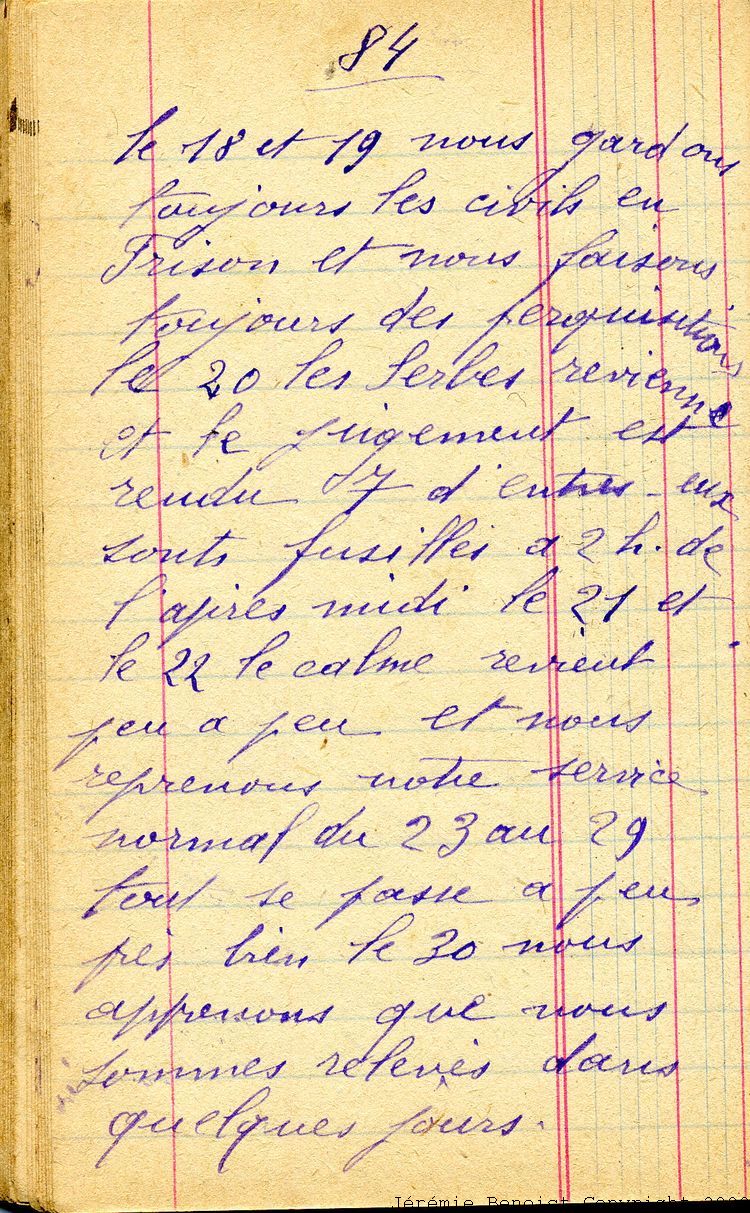 84
le 18 et 19 nous gardons
toujours les civils en
Prison et nous faisons
toujours des perquisitions
le 20 les Serbes revienne
et le jugement est
rendu 7 d'entres eux
sonts fusillés a 2 h. de
l'apres midi le 21 et
le 22 le calme revient
peu a peu et nous
reprenons notre service
normal du 23 au 29
tout se passe a peu
près bien le 30 nous
apprenons que nous
sommes relevés dans
quelques jours.
Jérémie Benoist Copyright